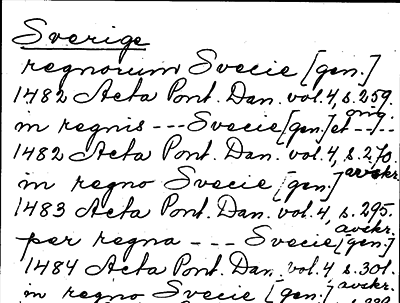 Sverige
regnorum Svecie [gen.]
1482 Acta Pont. Dan. vol. 4, s. 259.
orig.
in regnis --- Svecie [gen.] et --.--
1482 Acta Pont. Dan. vol. 4, s. 270.
avskr.
in regno Svecie [gen.]
1483 Acta Pont. Dan. vol. 4, s. 295.
avskr.
per regna --- Svecie [gen.]
1484 Acta Pont. Dan. vol. 4 s. 301.
avskr.
in regno Svecie [gen.]